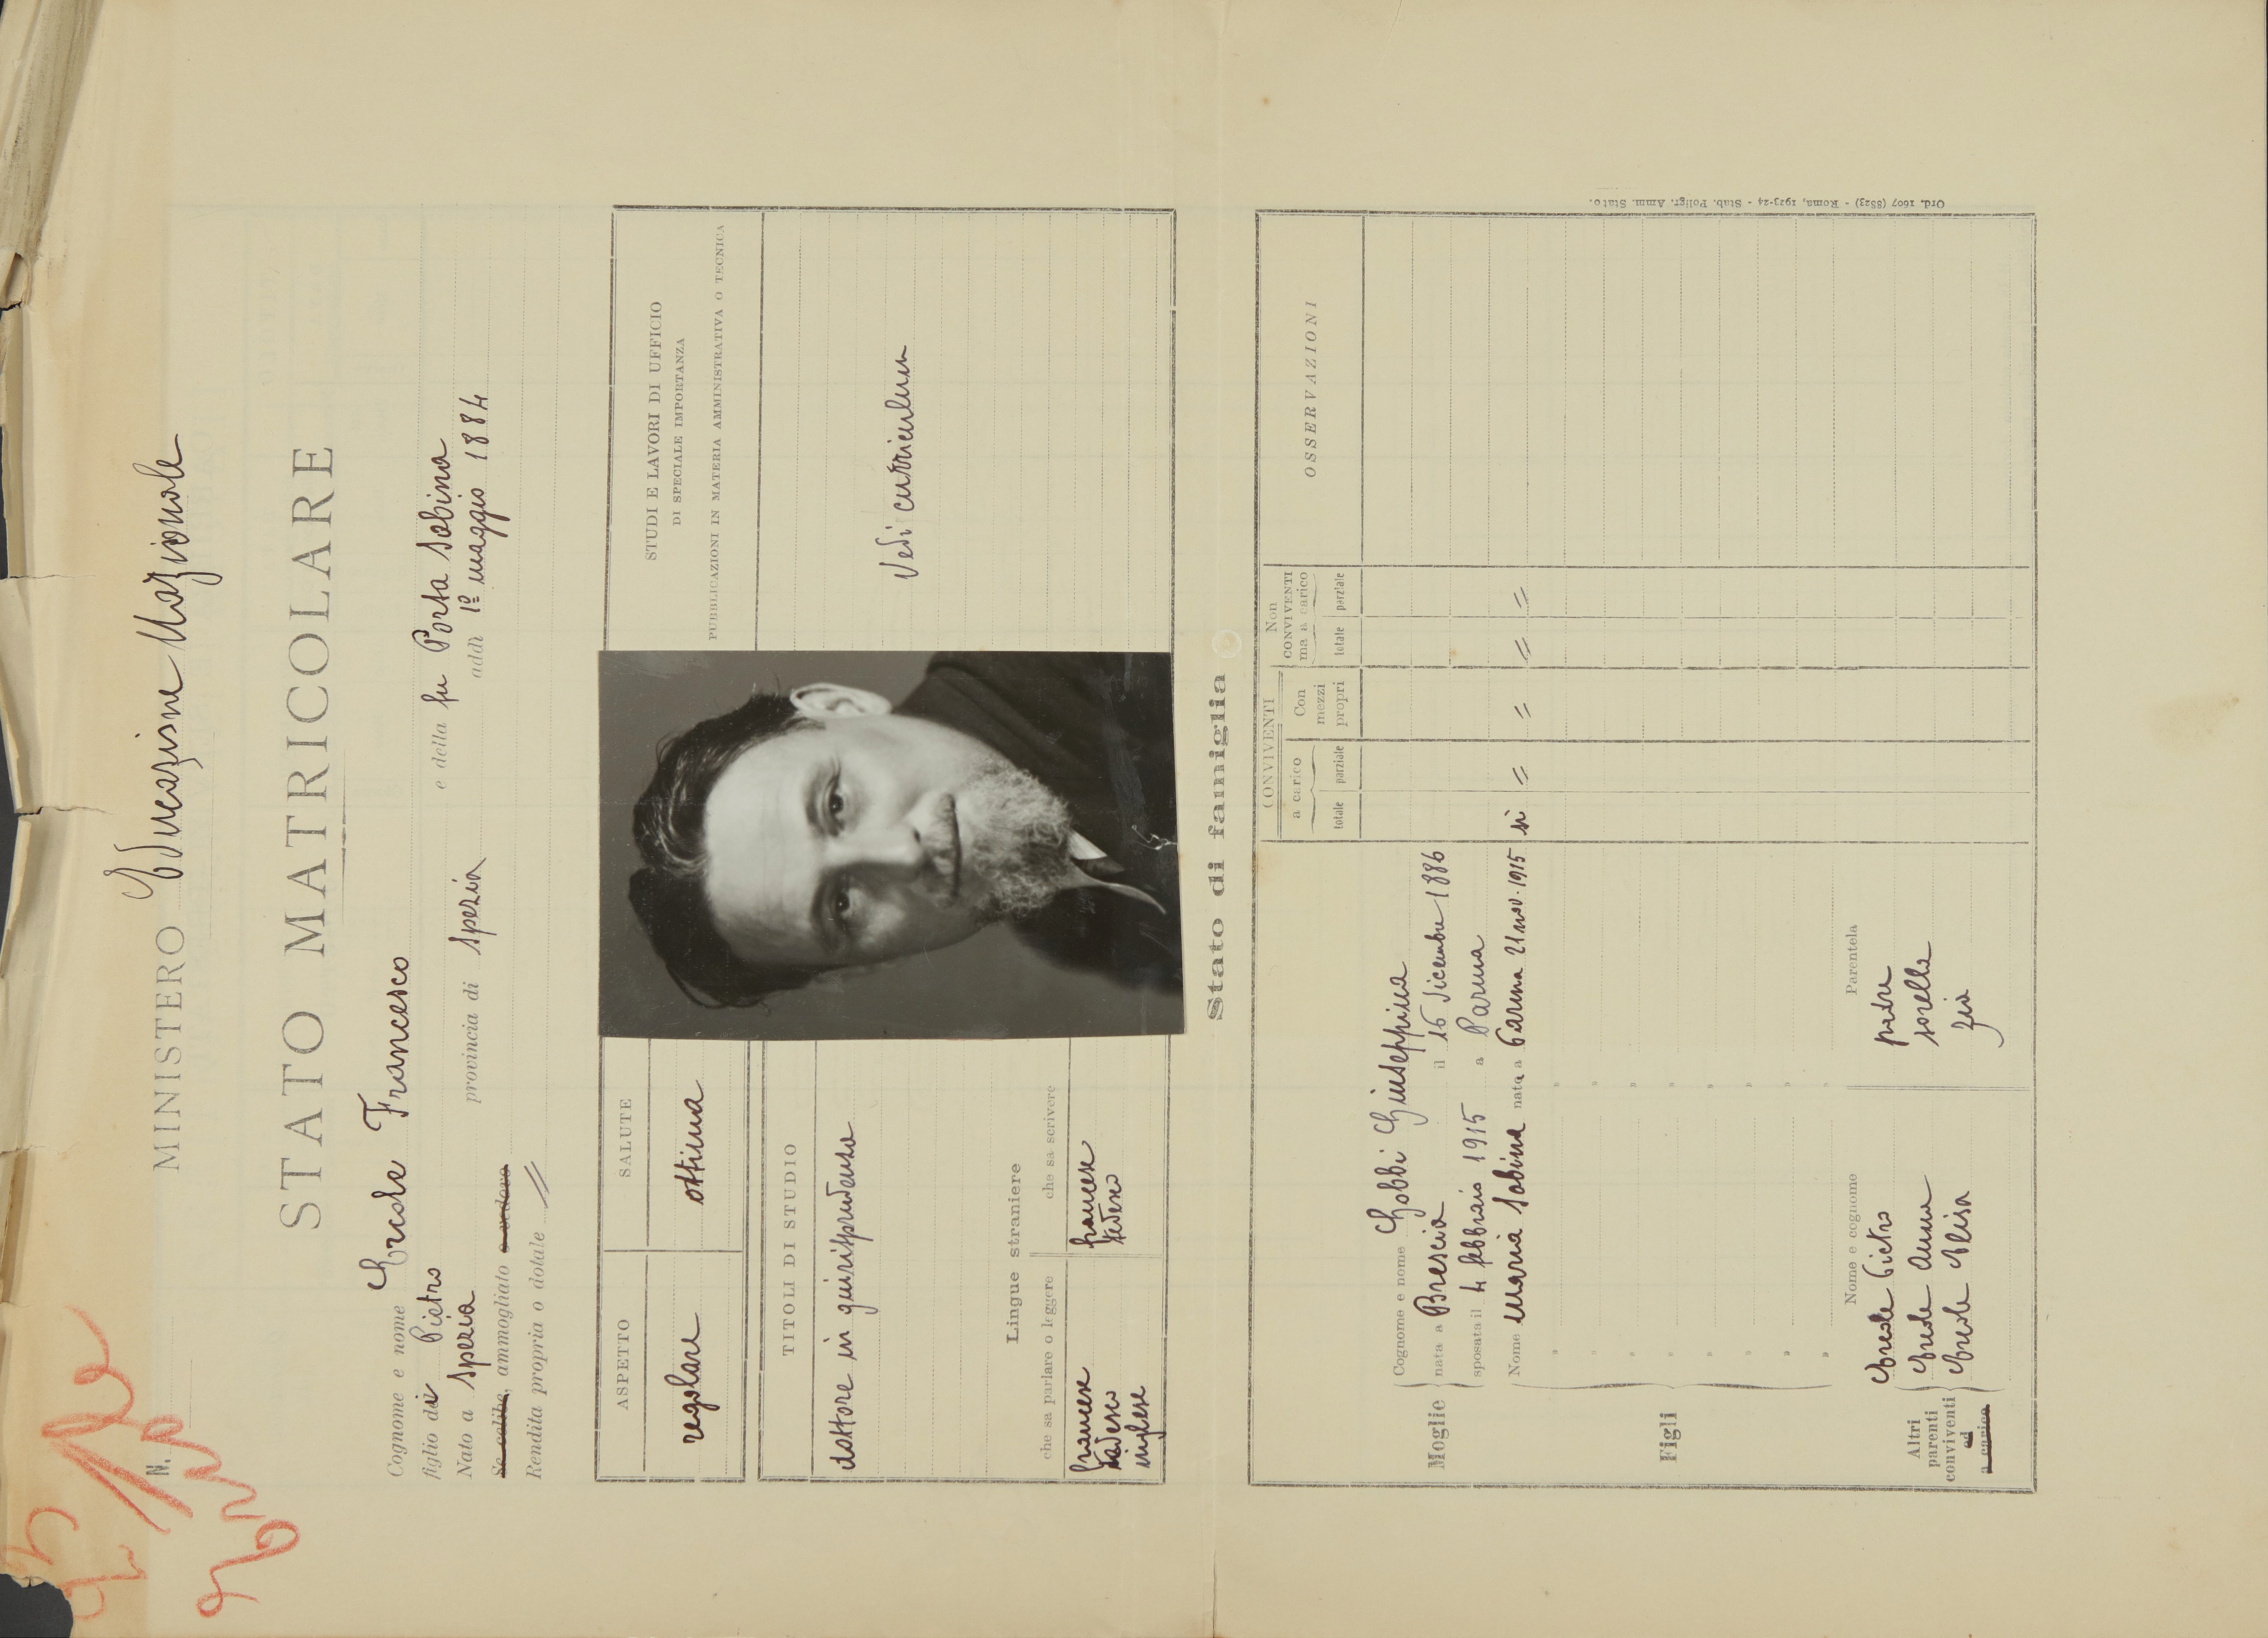 MINISTERO Educazione Nazionale
N.
STATO MATRICOLARE
Cognome e nome Ercole Francesco
figlio di Pietro e della fu Porta Sabina
Nato a Spezia provincia di Spezia addì 1º maggio 1884
Se celibe, ammogliato o vedovo
Rendita propria o dotale //
ASPETTO SALUTE
regolare ottima
STUDI E LAVORI DI UFFICIO
DI SPECIALE IMPORTANZA
PUBBLICAZIONI IN MATERIA AMMINISTRATIVA O TECNICA
Vedi curriculum
TITOLI DI STUDIO
dottore in giurisprudenza
Lingue straniere
che sa parlare o leggere che sa scrivere
francese francese
tedesco tedesco
inglese
Stato di famiglia
CONVIVENTI
a carico
totale parziale
Con
mezzi
propri
Non
CONVIVENTI
ma a carico
totale parziale
OSSERVAZIONI
Moglie
Cognome e nome Gobbi Giuseppina
nata a Brescia il 16 dicembre 1886
sposata il 4 febbraio 1915 a Parma
Figli
Nome Maria Sabina nata a Parma 21 nov. 1915 sì // // // //
" "
" "
" "
" "
" "
" "
" "
" "
Altri
parenti
conviventi
ed
a carico
Nome e cognome Parentela
Ercole Pietro padre
Ercole Anna sorella
Ercole Elisa zia
Ord. 1607 (8823) - Roma, 1923-24 - Stab. Poligr. Amm. Stato.